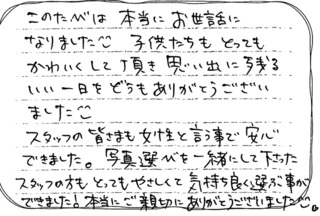 このたびは 本当に お世話に
なりました☺ 子供たちも とっても
かわいくして 頂き 思い出に 残る
いい一日を どうも ありがとうござい
ました☺
スタッフの 皆さまも 女性と言う事で 安心
できました。写真選びを 一緒にして下さった
スタッフの方も とってもやさしくて 気持ち良く 選ぶ事が
できました!本当にご親切に ありがとうございました☺。